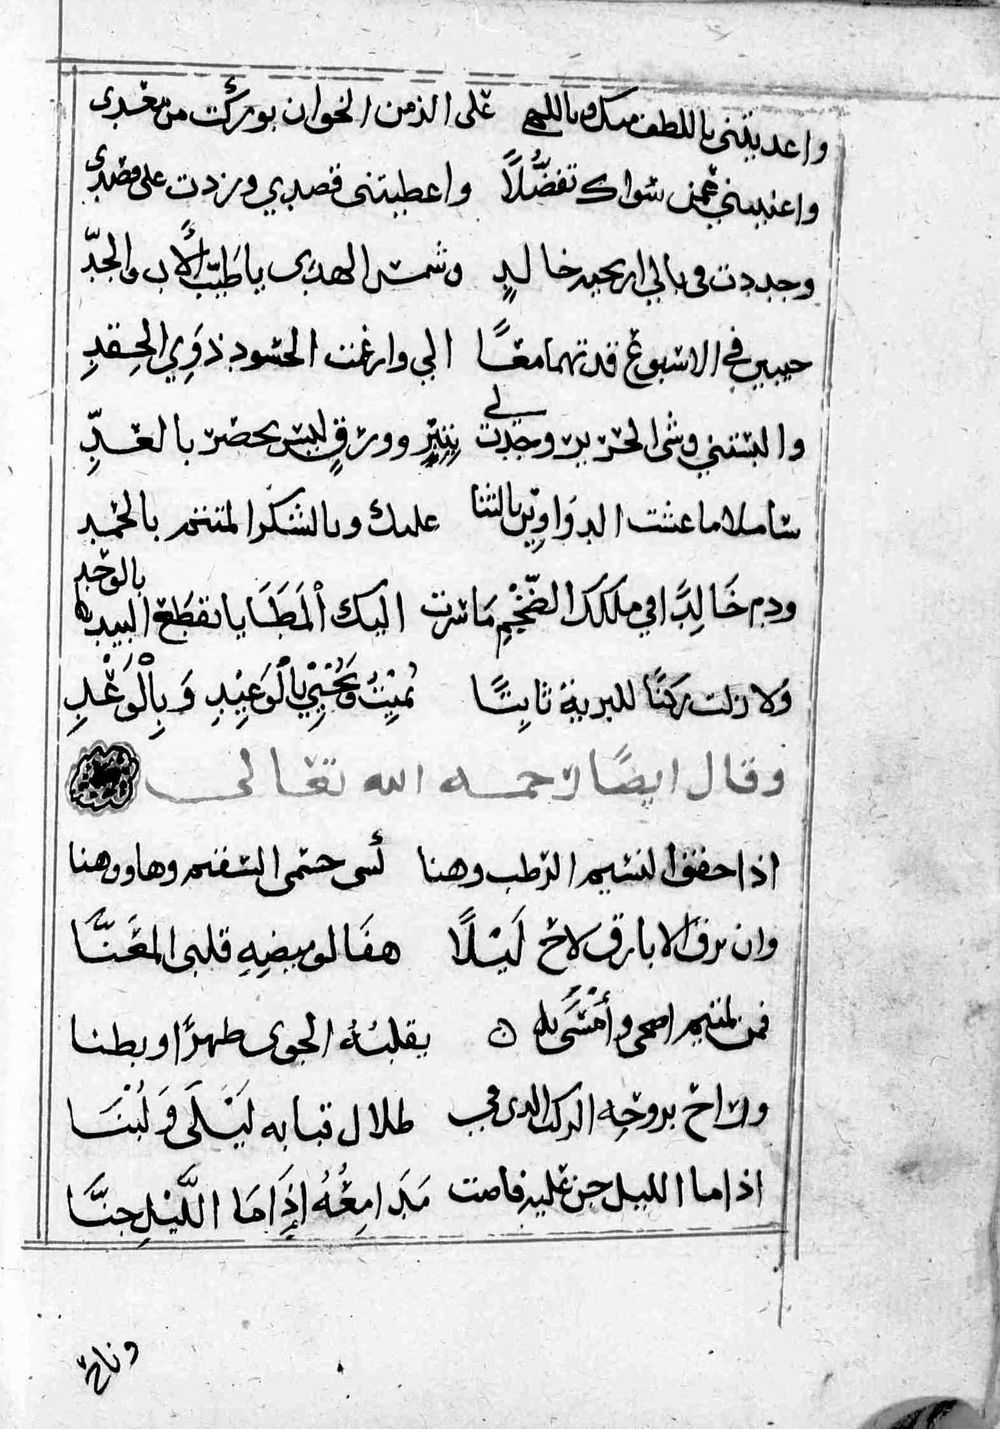 واعديتني باللطف منك وباللهى على الزمن الخوان بوركت من معدى
واغنيتني عمن سواك تفضُّلاً واعطيتنى قصدي وزدت على قصدى
وجددت فى بالي اريحية خالدٍ وشمت الهدى يا طيّب الأب والجدّ
حبيبين في الاسبوع قد تهما معًا الي وارغمت الحسود ذوي الحقدِ
والبستني وشى الحرير وجدت لي بتبرٍ وورقٍ ليس يحصر بالعدِّ
ساملا ما عشت الدواوين بالثنا عليك وبالشكر المتمم بالحمد
ودم خَالِدًا في ملكك الضّخْمِ مَا سرت اليك الْمَطَايا تقطَع البيد بالوخد
ولا زلت ركنًا للبرية ثابتًا تُمِيْتُ وَتُحْيِيْ بِالْوَعِيْدِ وَبِالْوَعْدِ
وقال ايضًا رحمه الله تعالى
اذا خفق النسيم الرطب وهنا أسى حتمى السقم وهاو وهنا
وان برق الابارق لاح لَيْلًا هفَا لوميضِهِ قلبى المعَنَّا
فمن لمتيم اضحى وأمْسَى به يقلبُهُ الجوى ظهرًا وبطنا
وراح بروحه الركب الذى في ظلال قبابه لَيْلَى وَلُبْنَا
اذا ما الليل جن عليه فاضت مَدَامِعُهُ إِذَا مَا اللَّيْلِ جنَّا
وناح